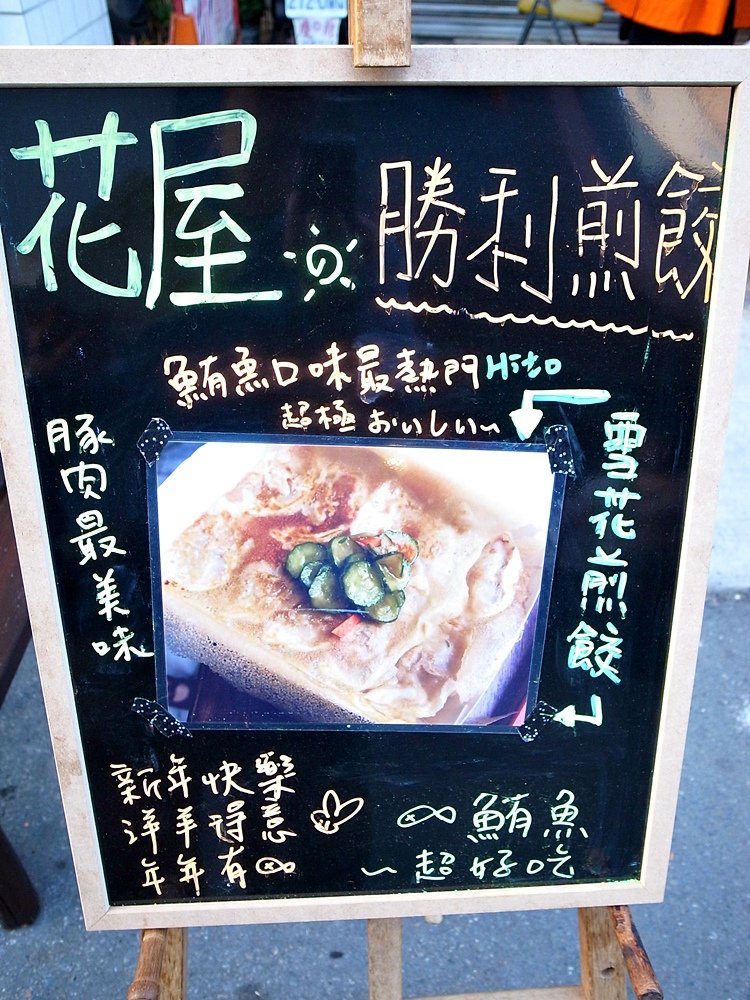 花屋の勝利煎餃
鮪魚口味最熱門Hito
超極おいしい~
雪花煎餃
豚肉最美味
新年快樂
洋羊得意
年年有
鮪魚
~超好吃